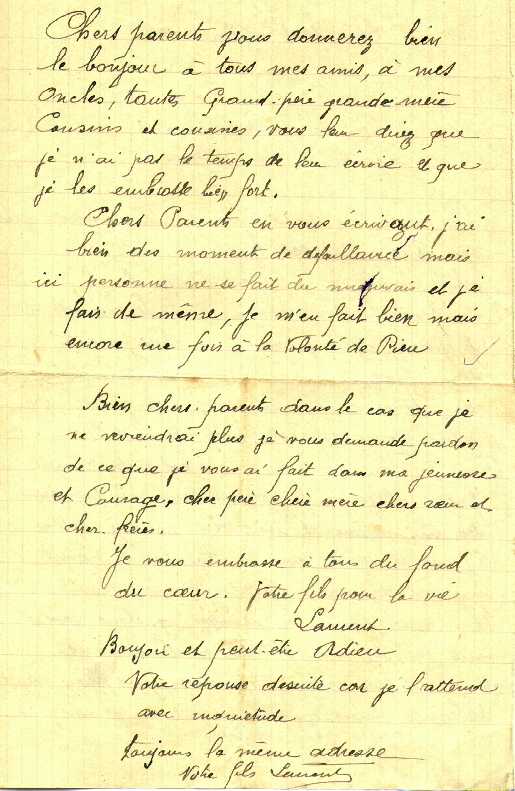 Chers parents vous donnerez bien
le bonjour à tous mes amis, à mes
Oncles, tantes Grand-père grande mère
Cousins et cousines, vous leur direz que
je n'ai pas le temps de leur écrire et que
je les embrasse bien fort.
Chers Parents en vous écrivant, j'ai
bien des moment de défaillance mais
ici personne ne se fait du mauvais et je
fais de même, Je m'en fait bien mais
encore une fois à la Volonté de Dieu
Bien chers parents dans le cas que je
ne reviendrai plus je vous demande pardon
de ce que je vous ai fait dans ma jeunesse
et Courage, cher père chère mère chers sœur et
cher frères.
Je vous embrasse à tous du fond
du cœur. Votre fils pour la vie
Laurent
Bonjour et peut-être Adieu
Votre réponse desuite car je l'attend
avec inquiétude
toujours la même adresse
Votre fils Laurent